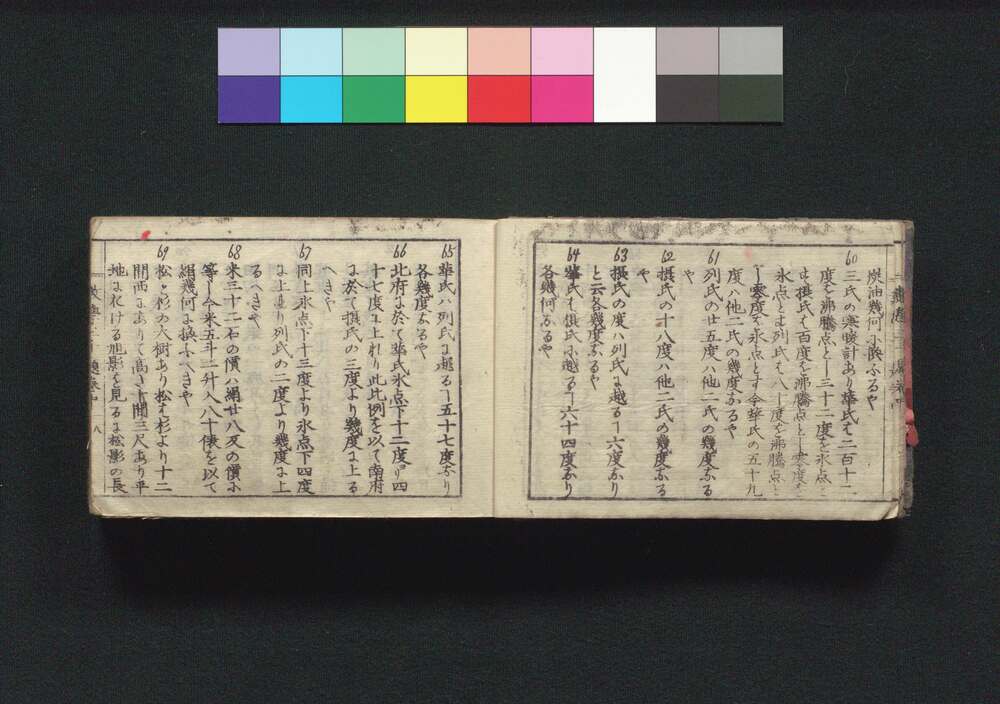 炭油幾何小換ふるや
60
三氏の寒暖計あり華氏は二百十二
度を沸騰点とし三十二度を氷点と
は摂氏は百度を沸騰点とし寒度を
氷点とは列氏は八十度を沸騰点と
し寒度を氷点とす今華氏の五十九
度ハ他二氏の幾度なるや
61
列氏の廿五度ハ他二氏の幾度なる
や
62
摂氏の十八度ハ他二氏の幾度なる
や
63
摂氏の度ハ列氏に越ること六度なり
と云各幾度なるや
64
華氏は摂氏に越ること六十四度なり
各幾何なるや
65
華氏ハ列氏に越ること五十七度なり
各幾度なるや
66
北府に於て華氏氷点下十二度四
十七度に上れり此比例を以て南府
に於て摂氏の三度より幾度に上る
へきや
67
同上氷点下十三度より氷点下四度
に上より列氏の二度より幾度に上
るへきや
68
米三十二石の價ハ絹廿八反の價に
等し今米五斗二升入八十俵を以て
絹幾何に換ふへきや
69
松と杉の大樹あり松は杉より十二
間西にありて高さ十間三尺あり平
地に於ける旭影を見るに松影の長
八